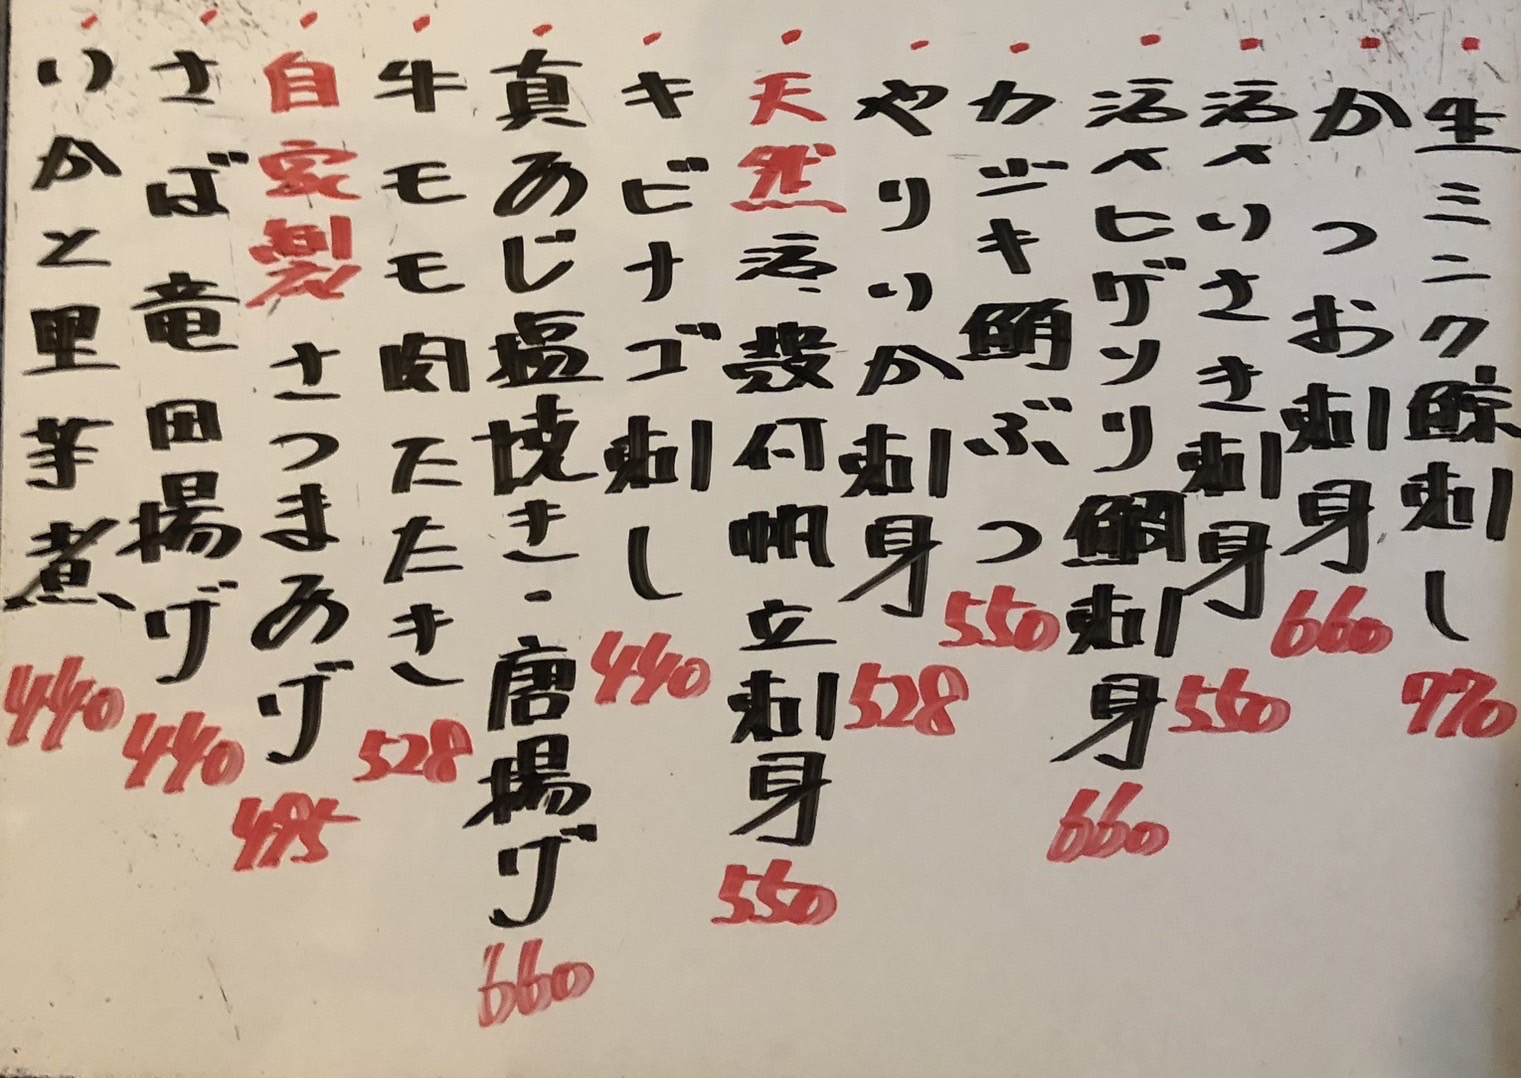 生ミンク鯨刺し 770
かつお刺身 660
活〆いさき刺身 550
活〆ヒゲソリ鯛刺身 660
カジキ鮪ぶつ 550
やりいか刺身 528
天然活殻付帆立刺身 550
キビナゴ刺し 440
真あじ塩焼き・唐揚げ 660
牛モモ肉たたき 528
自家製さつまあげ 495
さば竜田揚げ 440
いかと里芋煮 440